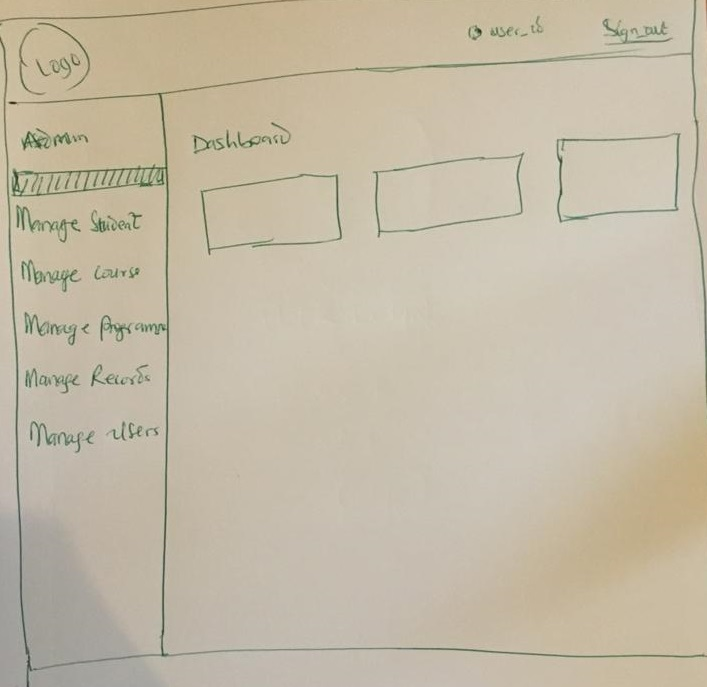 Logo
user_id
Sign_out
Admin
Dashboard
Manage Student
Manage Course
Manage Programme
Manage Records
Manage Users